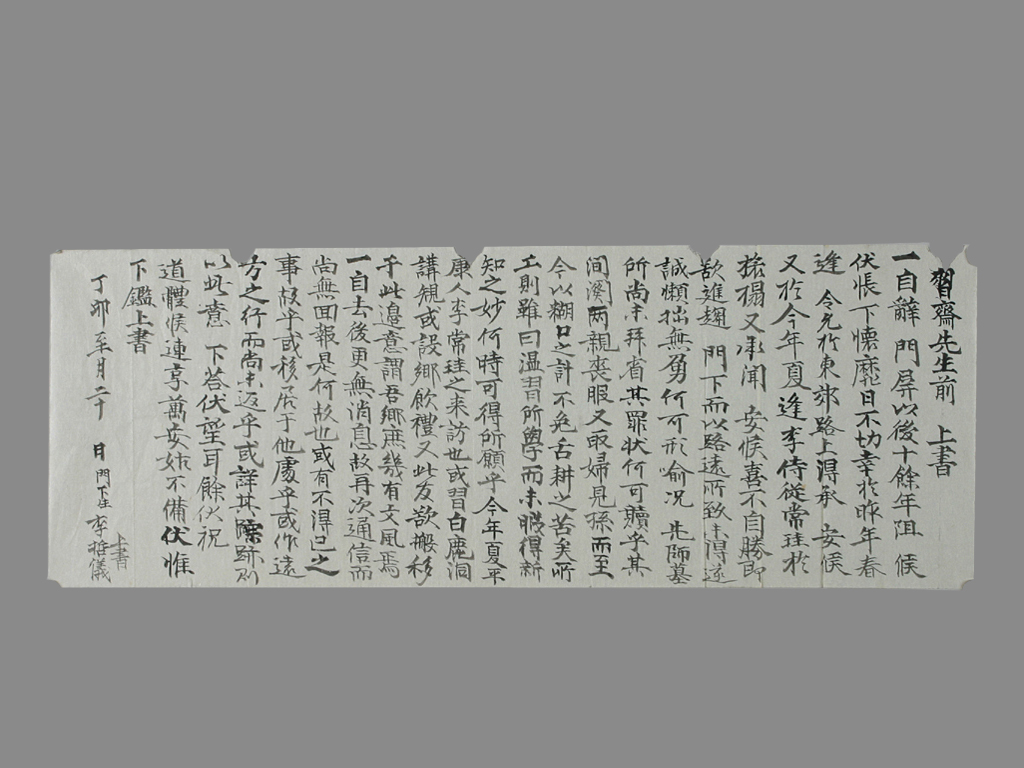 習齋先生前 上書
一自辭 門屏以後十餘年阻 候
伏悵下懷靡日不切幸於昨年春
逢 令允於東郊路上得承 安候
又於今年夏逢李侍從常珪於
旅榻又承聞 安候喜不自勝即
欲進趨 門下而以路遠所致未得遂
誠懶拙無勇何可形喻況 先師墓
所尚未拜省其罪状何可贖乎其
間 兩親喪服又取婦見孫而至
今以糊口之計不免舌耕之苦矣所
工則雖曰温習所學而未得新
知之妙何時可得所願乎今年夏平
康人李常珪之来訪也或習白鹿洞
講規或設鄉飲禮又此友欲搬移
于此邉意謂吾鄉庶幾有文風焉
一自去後更無消息故再次通信而
尚無回報是何故也或有不得已之
事故乎或移居于他處乎或作遠
方之行而尚未返乎或詳其 跡則
以此意 下答伏望耳餘伏祝
道體候連享萬安姑不備伏惟
下鑑上書
丁卯 至月二十 日 門下生 李 儀 上書